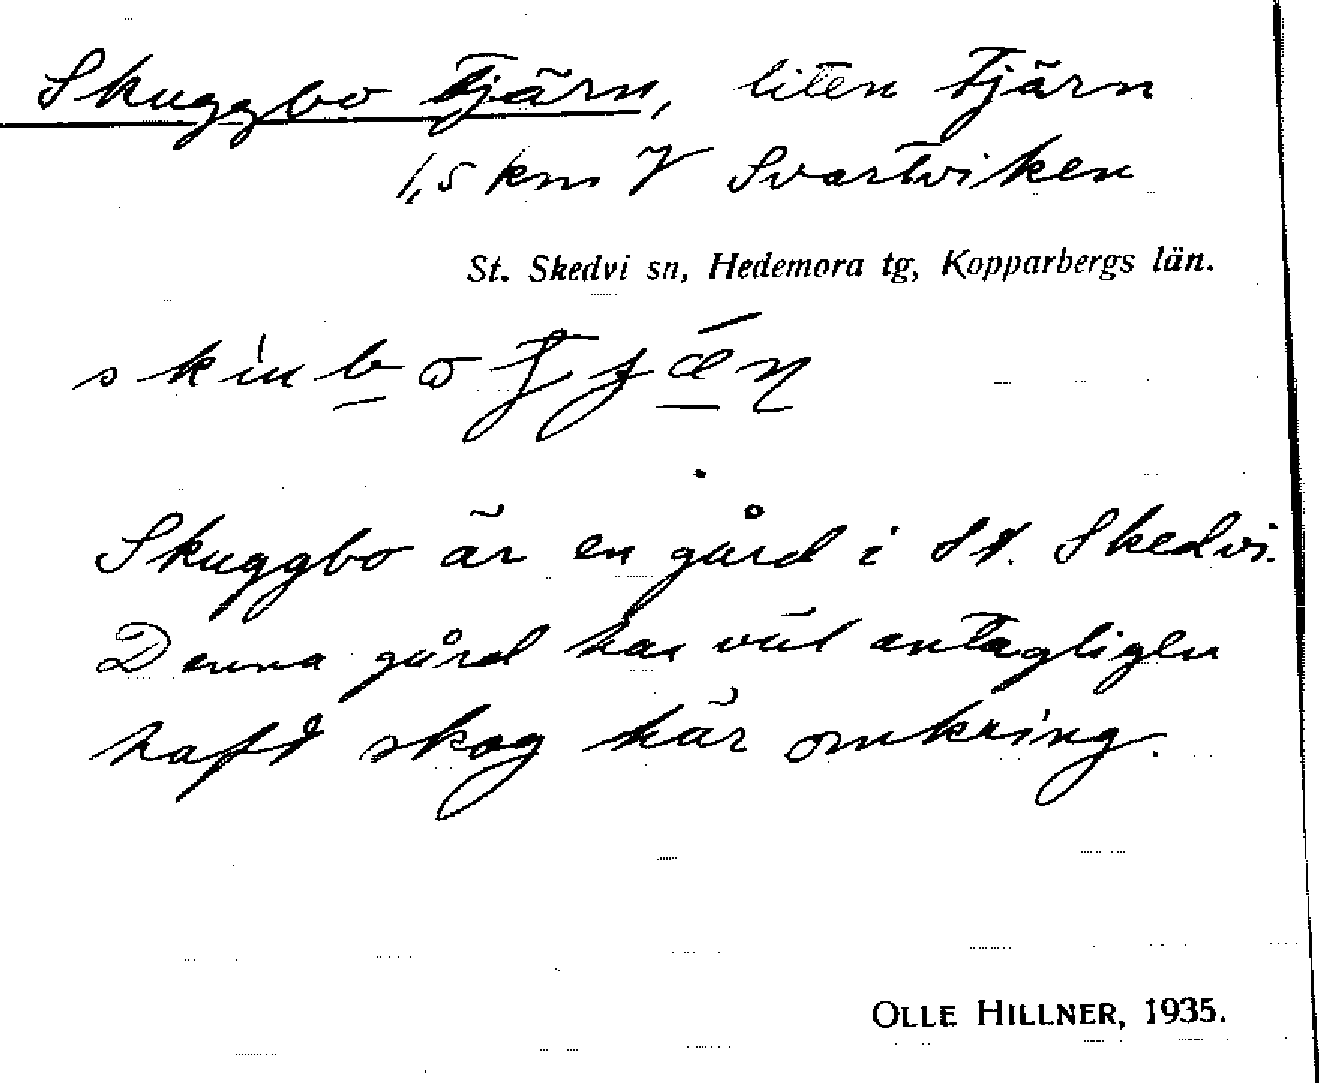 Skuggbo tjärn, liten tjärn
1,5 km V Svartviken
St. Skedvi sn, Hedemora tg, Kopparbergs län.
Skuggbo är en gård i St. Skedvi.
Denna gård har väl antagligen
haft skog här omkring.
OLLE HILLNER, 1935.